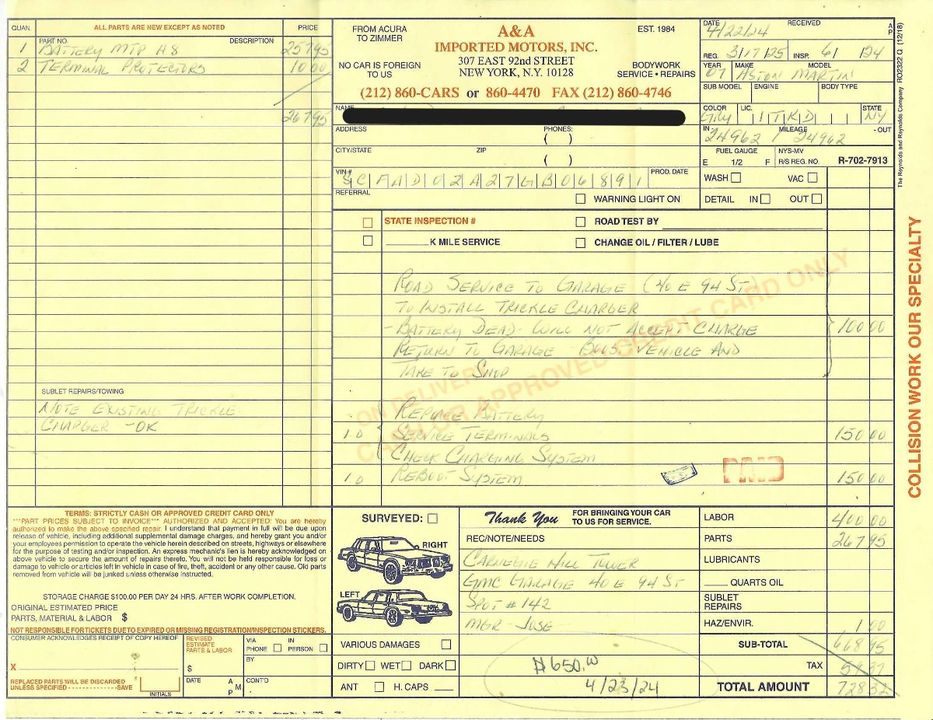 QUAN. ALL PARTS ARE NEW EXCEPT AS NOTED PRICE
PART NO. DESCRIPTION
1 BATTERY MTP H8 257 95
2 TERMINAL PROTECTORS 10 00
267 95
SUBLET REPAIRS/TOWING
NOTE EXISTING TRICKLE
CHARGER - OK
FROM ACURA
TO ZIMMER
NO CAR IS FOREIGN
TO US
A&A
IMPORTED MOTORS, INC.
307 EAST 92nd STREET
NEW YORK, N.Y. 10128
EST. 1984
BODYWORK
SERVICE • REPAIRS
(212) 860-CARS or 860-4470 FAX (212) 860-4746
NAME
ADDRESS PHONES:
( )
CITY/STATE ZIP
( )
VIN # SCFAD02A27GB06891 PROD. DATE
REFERRAL
WARNING LIGHT ON
DATE 4/22/24 RECEIVED A P
REG. 3/17/25 INSP. 6/ /24
YEAR MAKE MODEL
07 ASTON MARTIN
SUB MODEL ENGINE BODY TYPE
COLOR LIC. STATE
GRY ITKD NY
IN MILEAGE - OUT
24962 / 24962
FUEL GAUGE NYS-MV
E 1/2 F R/S REG. NO. R-702-7913
WASH VAC
DETAIL IN OUT
RO2322 Q (12/18)
The Reynolds and Reynolds Company
STATE INSPECTION # ROAD TEST BY
K MILE SERVICE CHANGE OIL / FILTER / LUBE
ROAD SERVICE TO GARAGE (40 E 94 ST
TO INSTALL TRICKLE CHARGER
- BATTERY DEAD - WILL NOT ACCEPT CHARGE 100 00
RETURN TO GARAGE BOOST VEHICLE AND
TAKE TO SHOP
REPLACE BATTERY
1 0 SERVICE TERMINALS 150 00
CHECK CHARGING SYSTEM
1 0 REBOOT SYSTEM 150 00
PAID
ON DELIVERY
CASH OR APPROVED CREDIT CARD ONLY
COLLISION WORK OUR SPECIALTY
TERMS: STRICTLY CASH OR APPROVED CREDIT CARD ONLY
***PART PRICES SUBJECT TO INVOICE*** AUTHORIZED AND ACCEPTED: You are hereby
authorized to make the above specified repair. I understand that payment in full will be due upon
release of vehicle, including additional supplemental damage charges, and hereby grant you and/or
your employees permission to operate the vehicle herein described on streets, highways or elsewhere
for the purpose of testing and/or inspection. An express mechanic's lien is hereby acknowledged on
above vehicle to secure the amount of repairs thereto. You will not be held responsible for loss or
damage to vehicle or articles left in vehicle in case of fire, theft, accident or any other cause. Old parts
removed from vehicle will be junked unless otherwise instructed.
STORAGE CHARGE $100.00 PER DAY 24 HRS. AFTER WORK COMPLETION.
ORIGINAL ESTIMATED PRICE
PARTS, MATERIAL & LABOR $
NOT RESPONSIBLE FOR TICKETS DUE TO EXPIRED OR MISSING REGISTRATION/INSPECTION STICKERS.
CONSUMER ACKNOWLEDGES RECEIPT OF COPY HEREOF
X
REPLACED PARTS WILL BE DISCARDED
UNLESS SPECIFIED SAVE INITIALS
REVISED
ESTIMATE
PARTS & LABOR
$
DATE A P M
VIA
PHONE IN PERSON
BY
CONT'D.
SURVEYED:
RIGHT
LEFT
VARIOUS DAMAGES
DIRTY WET DARK
ANT H. CAPS
Thank You FOR BRINGING YOUR CAR
TO US FOR SERVICE.
REC/NOTE/NEEDS
CARNEGIE HILL TOWER
GMC GARAGE 40 E 94 ST
SPOT # 142
MGR - JOSE
$650.00
4/23/24
LABOR 400 00
PARTS 267 95
LUBRICANTS
QUARTS OIL
SUBLET
REPAIRS
HAZ/ENVIR. 1 00
SUB-TOTAL 668 95
TAX 59 37
TOTAL AMOUNT 728 32